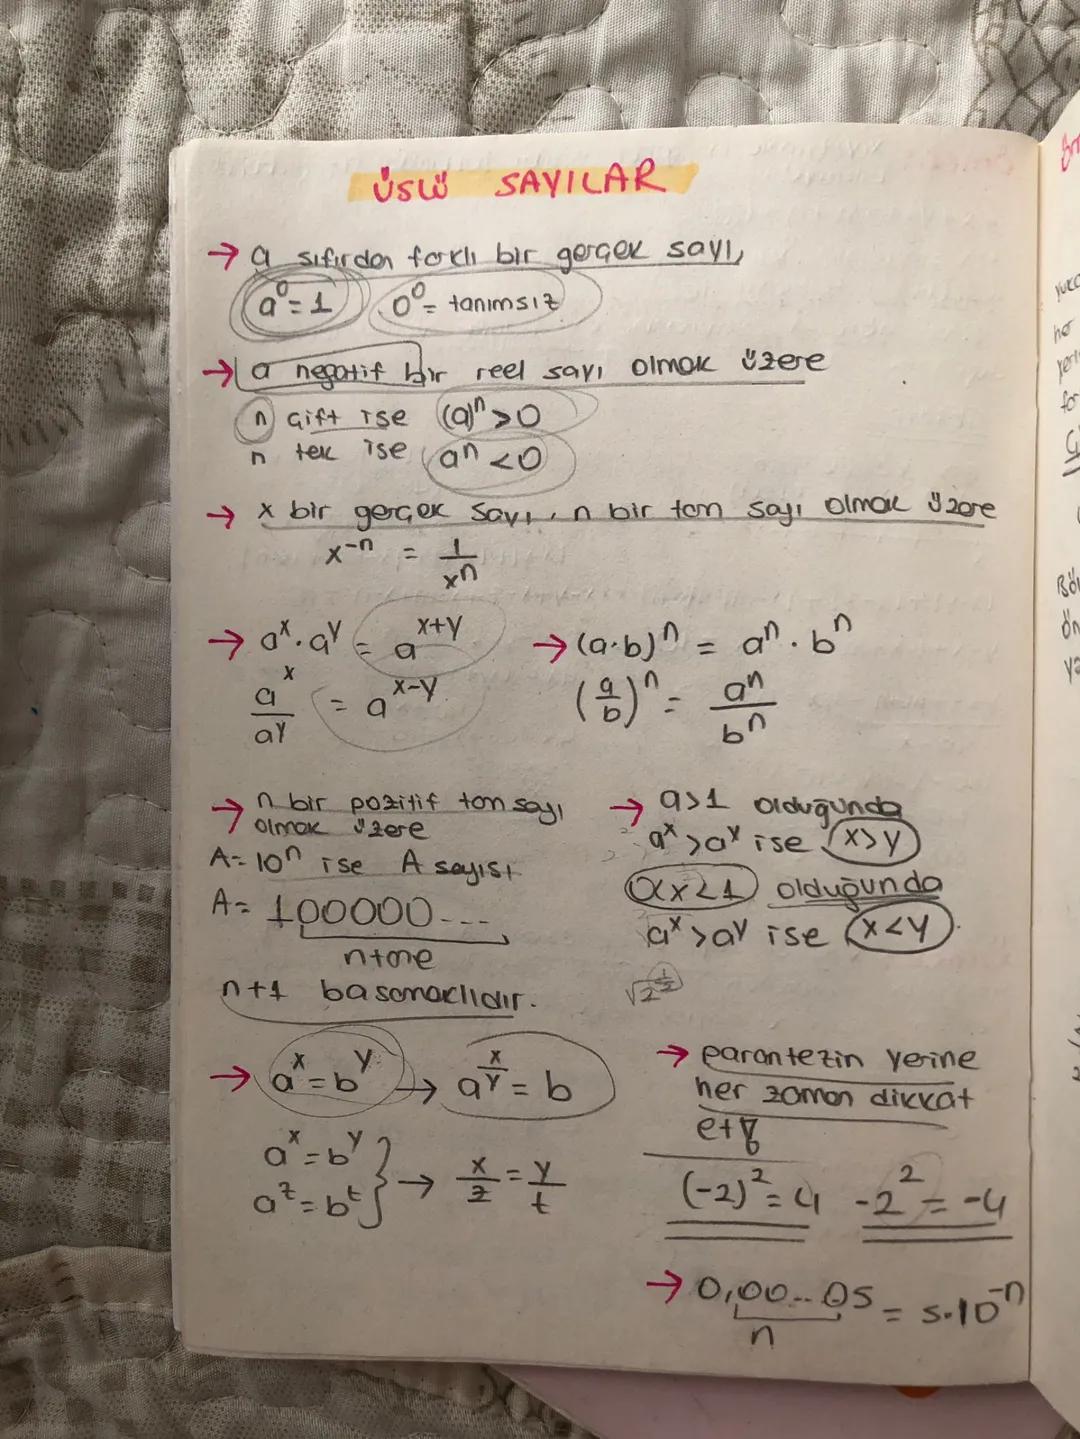 ÜSLÜ SAYILAR
→ a sıfırdan farklı bir gerçek sayı,
a⁰ = 1 0⁰ = tanımsız
→ a negatif bir reel sayı olmak üzere
n çift ise (a)ⁿ > 0
n tek ise aⁿ < 0
→ x bir gerçek sayı, n bir tam sayı olmak üzere
x⁻ⁿ = 1/xⁿ
→ a^x · a^y = a^(x+y)
a^x / a^y = a^(x-y)
→ (a·b)ⁿ = aⁿ · bⁿ
(a/b)ⁿ = aⁿ/bⁿ
→ n bir pozitif tam sayı
olmak üzere
A = 10ⁿ ise A sayısı
A = 100000---
n tane
n+1 basamaklıdır.
→ a>1 olduğunda
a^x > a^y ise x>y
0<x<1 olduğunda
a^x > a^y ise x<y
→ a^x = b^y → a^(x/y) = b
a^x = b^y
a^z = b^t } → x/z = y/t
→ parantezin yerine
her zaman dikkat
et
(-2)² = 4 -2² = -4
→ 0,00..05 = 5·10⁻ⁿ
n